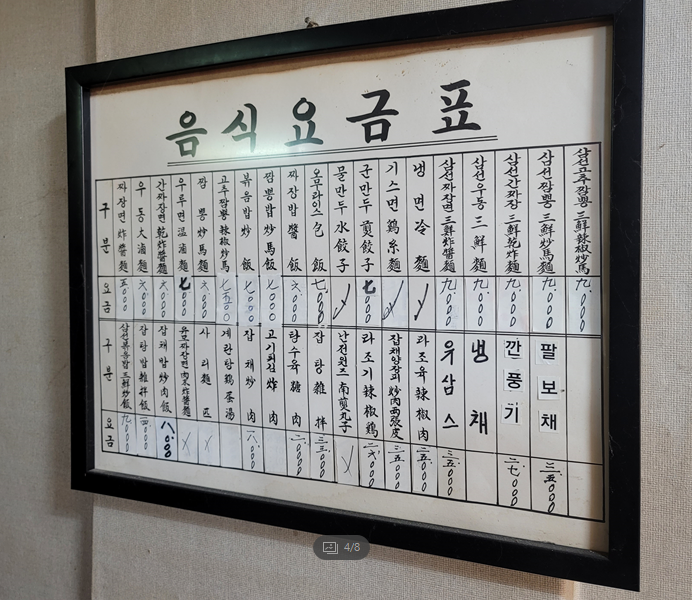 음식요금표
구분
짜장면 炸醬麵
우동 大滷麵
간짜장면 乾炸醬麵
우루면 温滷麵
짬뽕 炒馬麵
고추짬뽕 辣椒炒馬
볶음밥 炒飯
짬뽕밥 炒馬飯
짜장밥 醬飯
오무라이스 包飯
물만두 水餃子
군만두 煎餃子
기스면 鷄糸麵
냉면 冷麵
삼선짜장면 三鮮炸醬麵
삼선우동 三鮮麵
삼선간짜장 三鮮乾炸麵
삼선짬뽕 三鮮炒馬麵
삼선고추짬뽕 三鮮辣椒炒馬
요금
五.000
六.000
六.000
七.000
六.000
七五00
七.000
七.000
六.000
七.000
七.000
九.000
九.000
九.000
九.000
九.000
구분
삼선볶음밥 三鮮炒飯
잡탕밥 雜拌飯
잡채밥 炒肉飯
사리麵
계란탕 鷄蛋湯
잡채 炒肉
고기튀김 炸肉
탕수육 糖肉
잡탕 雜拌
난전완즈 南煎丸子
라조기 辣椒鷄
잡채양장피 炒肉両張皮
라조육 辣椒肉
유삼스
냉채
깐풍기
팔보채
요금
九.000
八.000
二六.000
二五.000
二五.000
三五.000
二七.000
三五.000
4/8